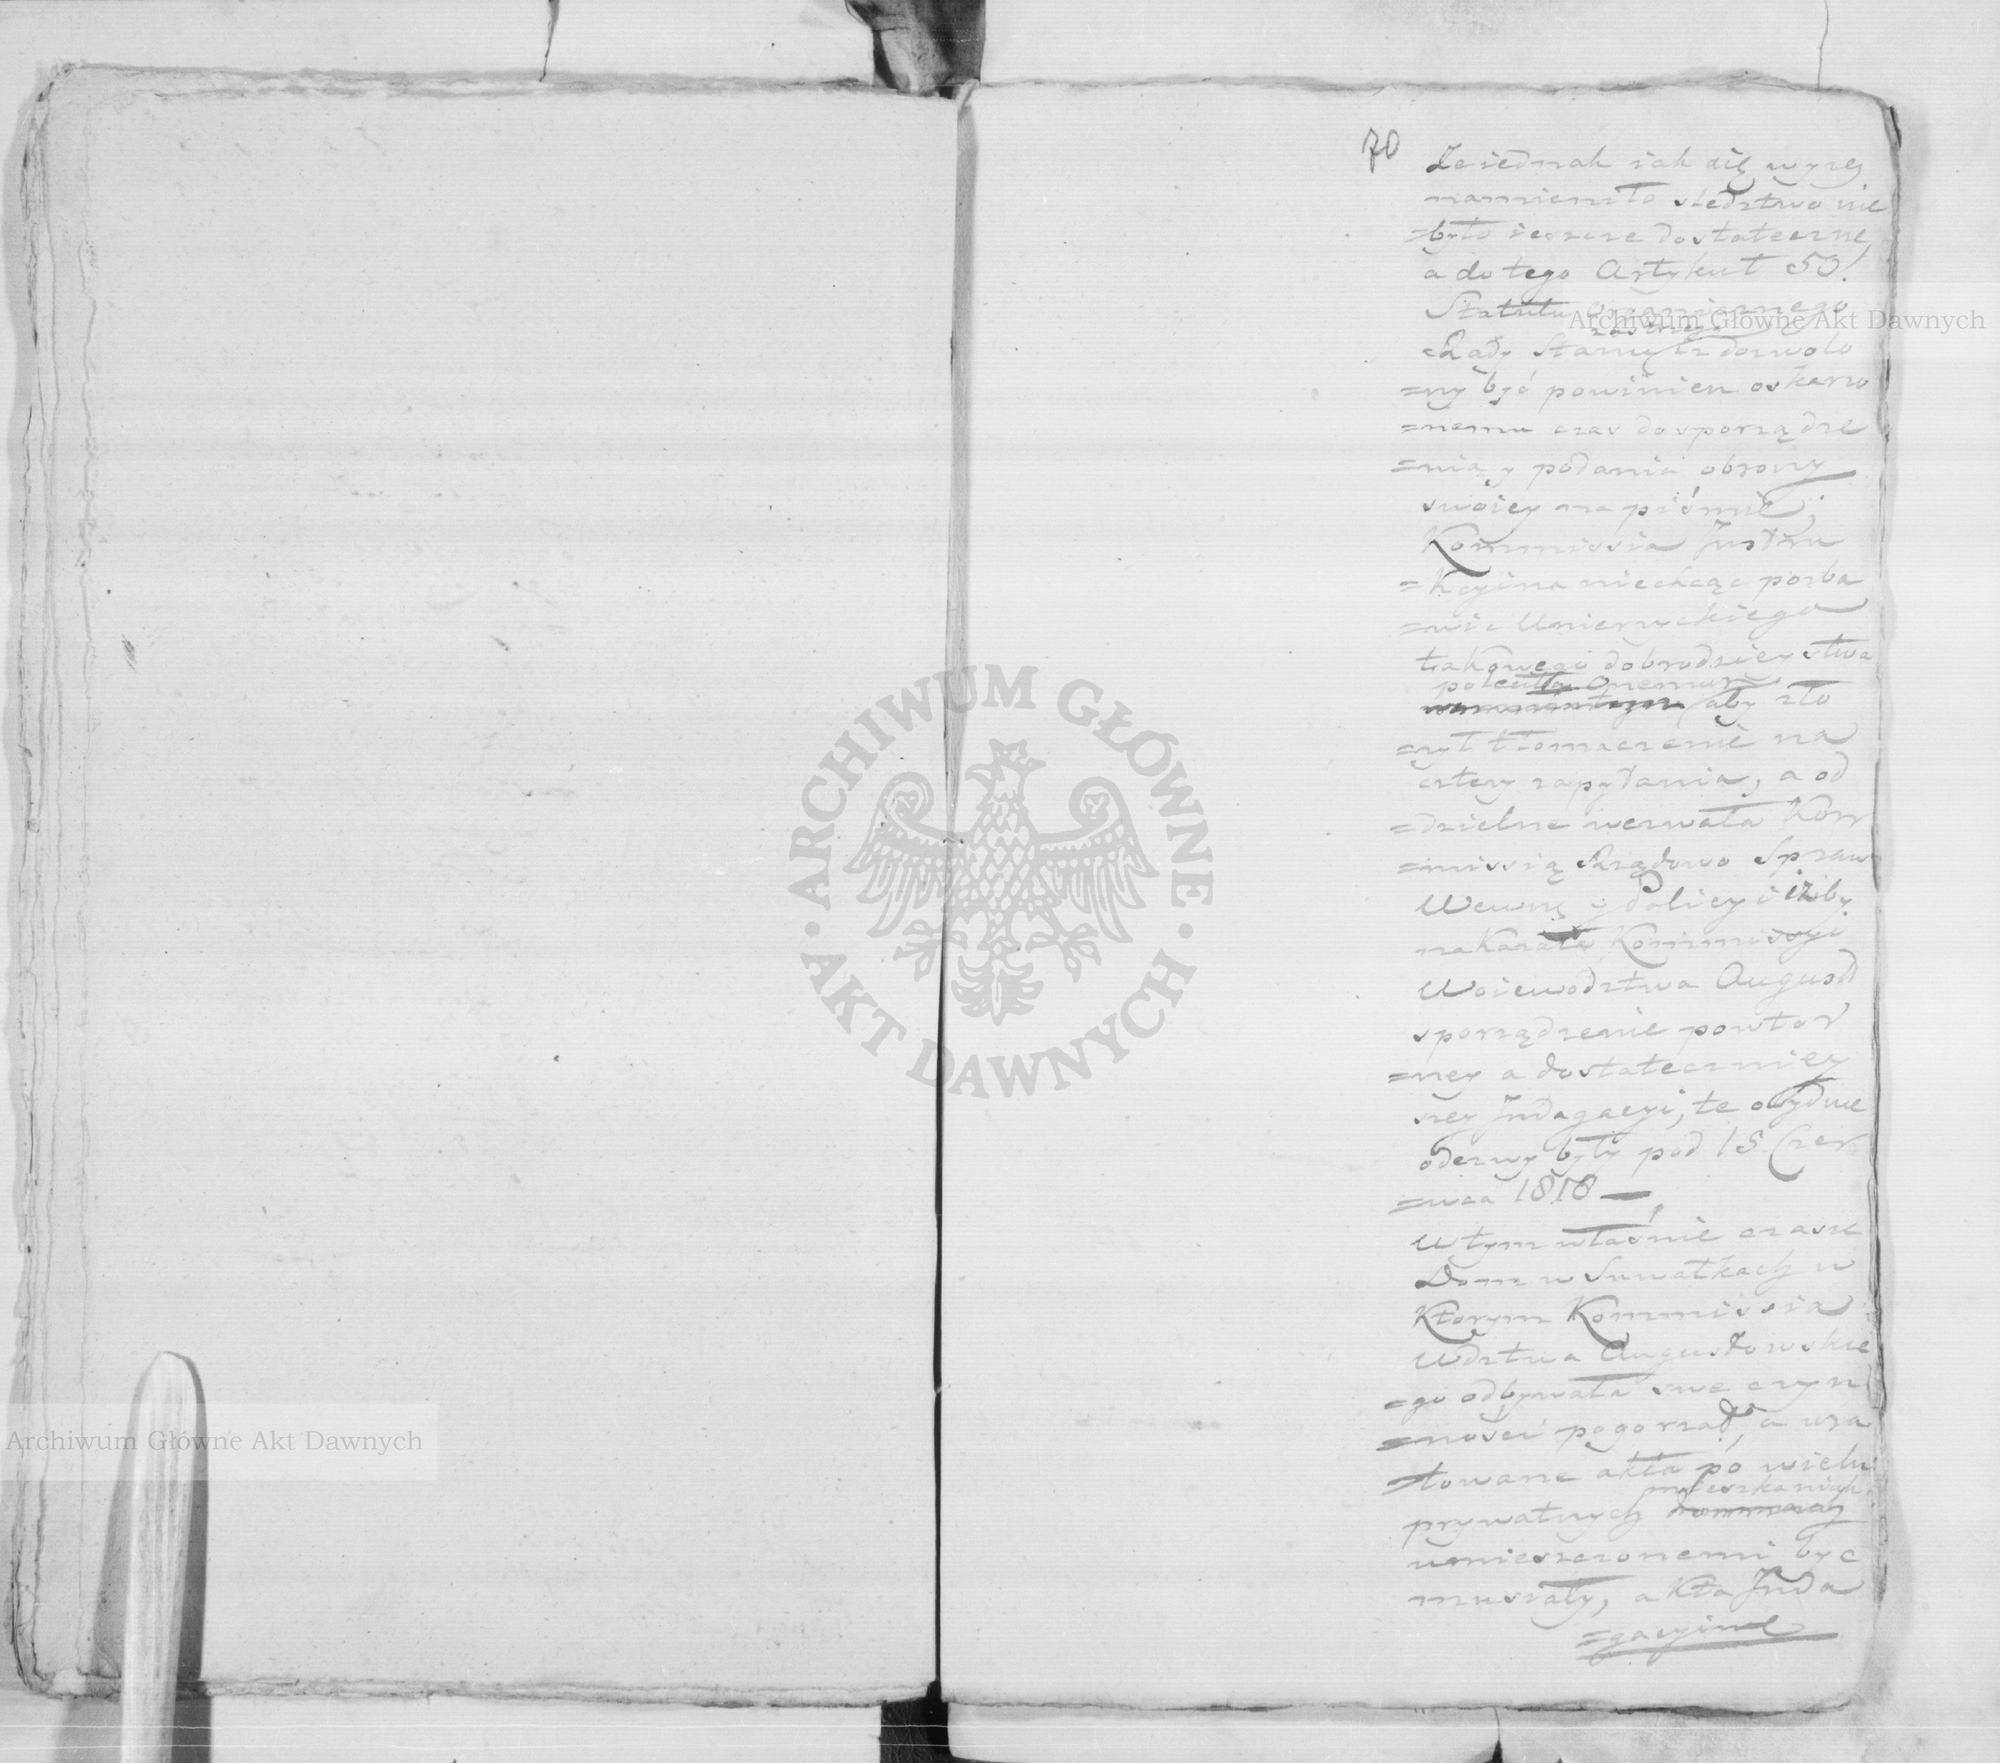 70
Ze iednak iak się wyżey
namieniło sledztwo nie
=było ieszcze dostateczne,
a do tego Artykuł 50.
Statutu Organicznego
Rady Stanu dozwolo
=ny być powinien oskarżo
=nemu czas do sporządze
=nia y podania obrony
swoiey na piśmie;
Kommissia Instru
=kcyina niechcąc pozba
=wić Unierzyckiego
takowego dobrodzieystwa
poleciła Onemuż
aby zło
=żył tłomaczenie na
cztery zapytania, a od
=dzielne wezwała Kom
=missią Rządowo Spraw
Wewnę y Policyi iżby
nakazała Kommissyi
Woiewodztwa August
sporządzenie powtor
=ney a dostateczniey
szey Indagacyi, te obydwie
odezwy były pod 15 Czer
=wca 1818 —
W tym właśnie czasie
Dom w Suwałkach w
Ktorym Kommissia
Wdztwa Augustowskie
=go odbywała swe czyn
=ności pogorzał, a ura
=towane akta po wielu
mieszkaniach
prywatnych
umieszczonemi być
musiały, akta Inda
=gacyine
Archiwum Główne Akt Dawnych
ARCHIWUM GŁÓWNE · AKT DAWNYCH ·
Archiwum Główne Akt Dawnych